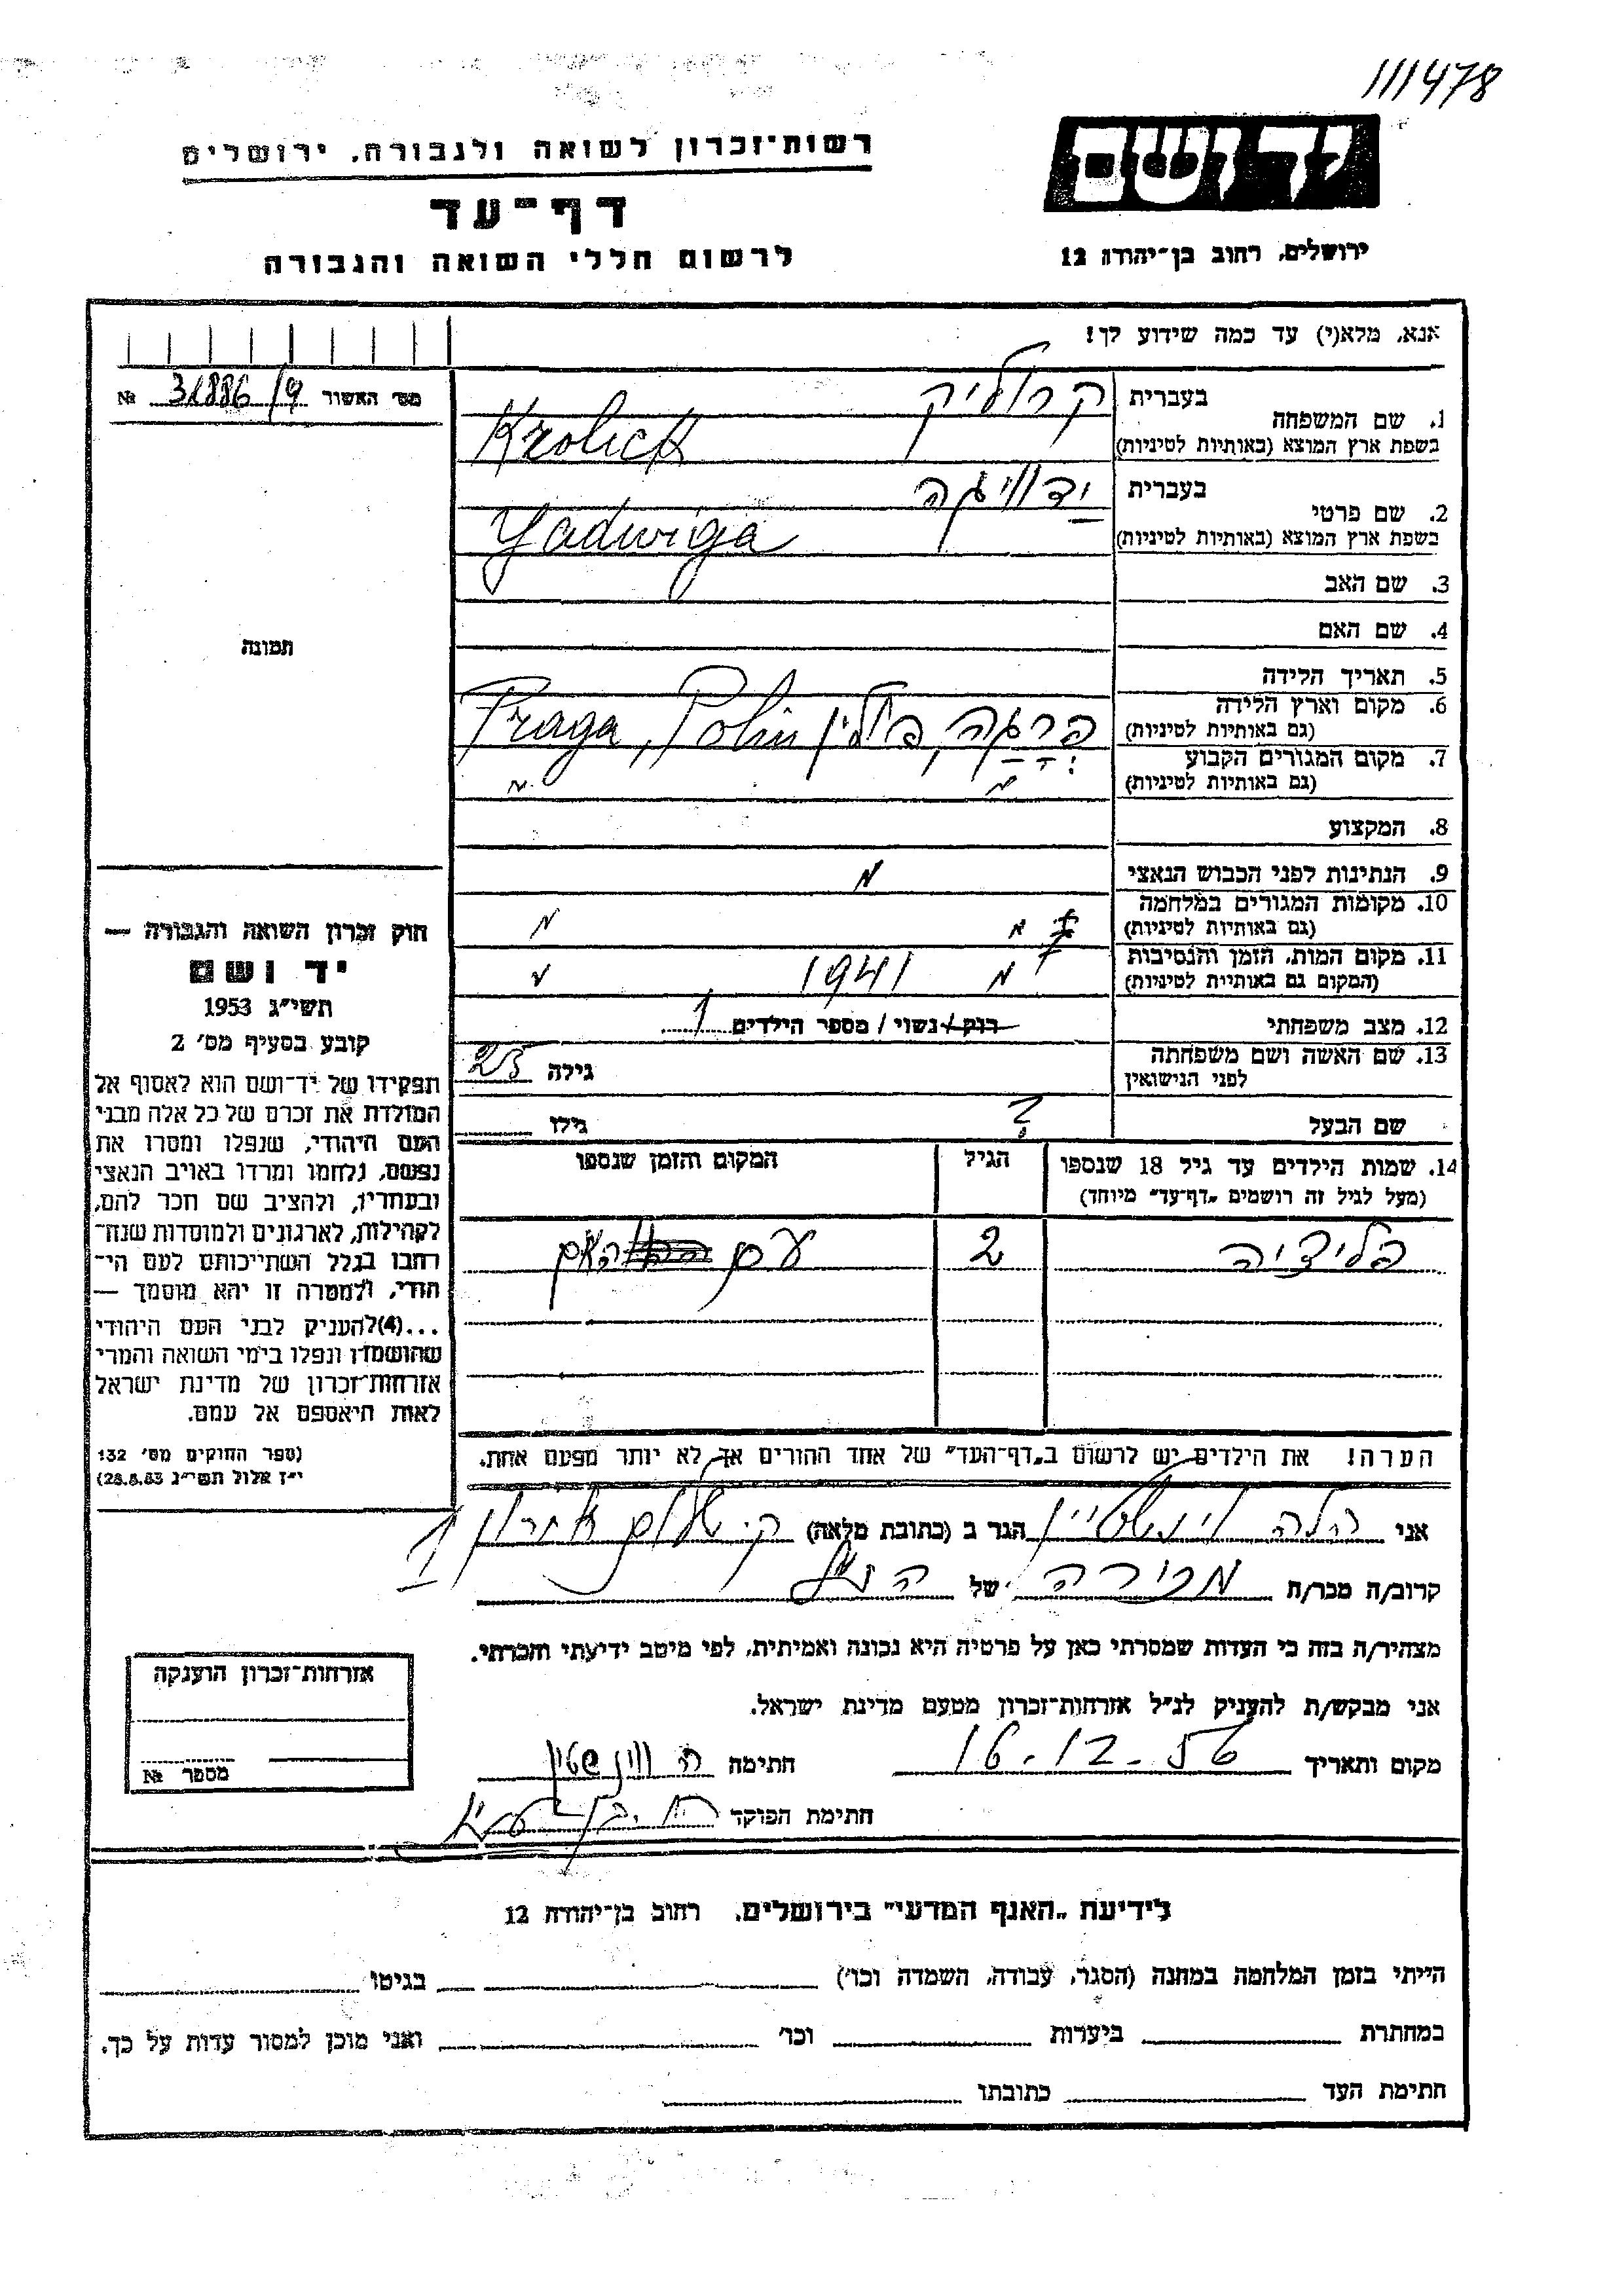 111478
יד ושם
רשות־זכרון לשואה ולגבורה, ירושלים
דף־עד
לרשום חללי השואה והגבורה
ירושלים, רחוב בן־יהודה 12
אנא, מלא(י) עד כמה שידוע לך!
מס׳ האשור 31886/9 №
1. שם המשפחה
בעברית קרוליק
בשפת ארץ המוצא (באותיות לטיניות) Krolick
2. שם פרטי
בעברית ידוויגה
בשפת ארץ המוצא (באותיות לטיניות) Yadwiga
3. שם האב
4. שם האם
תמונה
5. תאריך הלידה
6. מקום וארץ הלידה
(גם באותיות לטיניות) פרגה, פולין Praga, Polin
7. מקום המגורים הקבוע
(גם באותיות לטיניות)
8. המקצוע
9. הנתינות לפני הכבוש הנאצי
10. מקומות המגורים במלחמה
(גם באותיות לטיניות)
11. מקום המות, הזמן והנסיבות
(המקום גם באותיות לטיניות) 1941
12. מצב משפחתי רווק/נשוי/ מספר הילדים 1
13. שם האשה ושם משפחתה
לפני הנישואין גילה 25
שם הבעל ? גילו
14. שמות הילדים עד גיל 18 שנספו
(מעל לגיל זה רושמים „דף־עד״ מיוחד)
הגיל
המקום והזמן שנספו
2 עם האם
חוק זכרון השואה והגבורה —
יד ושם
תשי״ג 1953
קובע בסעיף מס׳ 2
תפקידו של יד־ושם הוא לאסוף אל
המולדת את זכרם של כל אלה מבני
העם היהודי, שנפלו ומסרו את
נפשם, נלחמו ומרדו באויב הנאצי
ובעוזריו, ולהציב שם וזכר להם,
לקהילות, לארגונים ולמוסדות שנח־
רבו בגלל השתייכותם לעם הי־
הודי, ולמטרה זו יהא מוסמך —
...(4)להעניק לבני העם היהודי
שהושמדו ונפלו בימי השואה והמרי
אזרחות־זכרון של מדינת ישראל
לאות היאספם אל עמם.
(ספר החוקים מס׳ 132
י״ז אלול תשי״ג 28.8.53)
הערה! את הילדים יש לרשום ב„דף־העד״ של אחד ההורים אך לא יותר מפעם אחת.
אני הלה וינשטיין הגר ב (כתובת מלאה) ק. שלום
קרוב/ה מכר/ה מכירה של הנ״ל
מצהיר/ה בזה כי העדות שמסרתי כאן על פרטיה היא נכונה ואמיתית, לפי מיטב ידיעתי והכרתי.
אני מבקש/ת להעניק לנ״ל אזרחות־זכרון מטעם מדינת ישראל.
מקום ותאריך 16-12-56 חתימה ה ווינשטין
חתימת הפוקד
אזרחות־זכרון הוענקה
מספר №
לידיעת „האגף המדעי״ בירושלים, רחוב בן־יהודה 12
הייתי בזמן המלחמה במחנה (הסגר, עבודה, השמדה וכו׳) בגיטו
במחתרת ביערות וכו׳ ואני מוכן למסור עדות על כך.
חתימת העד כתובתו